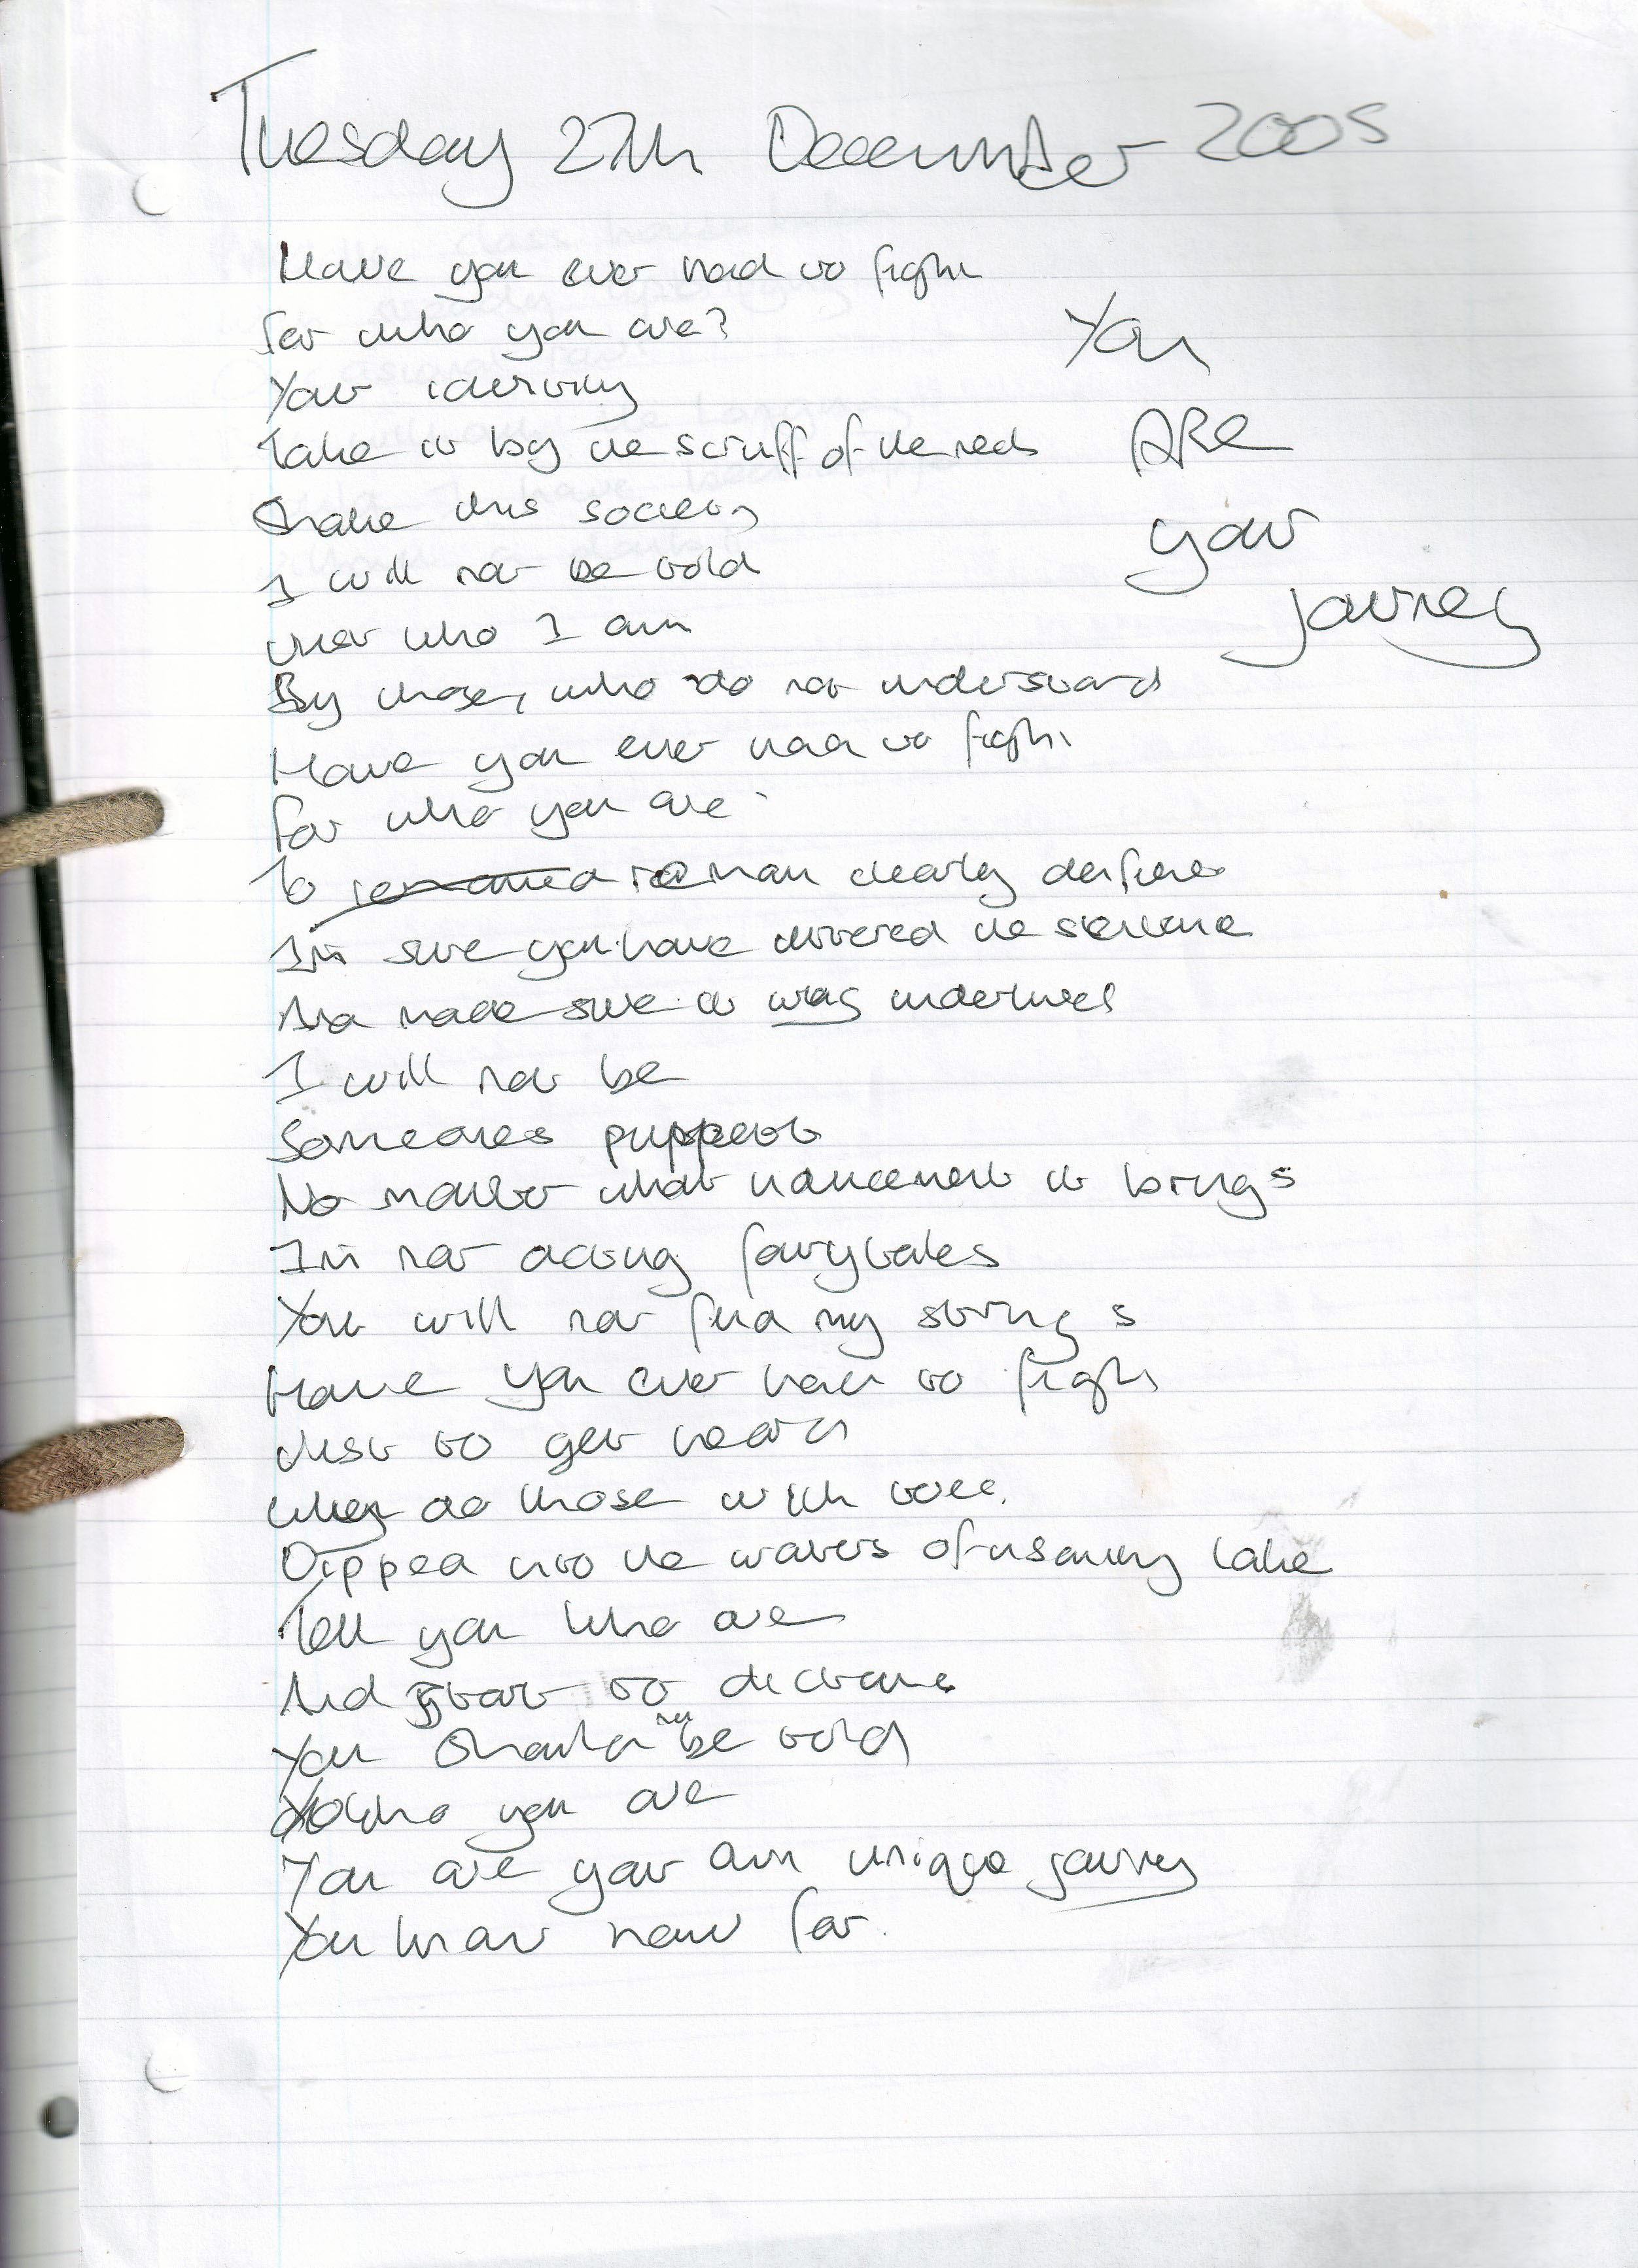 Tuesday 27th December 2005
Have you ever had to fight
for who you are?
Your identity
Take it by the scruff of the neck
Shake this society
I will not be told
who I am
By those, who do not understand
Have you ever had to fight
For who you are
To remain clearly defined
I'm sure you have uttered the sentence
And made sure it was underlined
I will not be
Someones puppet
No matter what it brings
I'm not acting fairytales
You will not find my strings
Have you ever had to fight
Just to get heard
When do those with
Dipped into the waters of insanity lake
Tell you who are
And start to dictate
You should not be told
Who you are
You are your own unique journey
You know how far.
You
ARe
your
journey